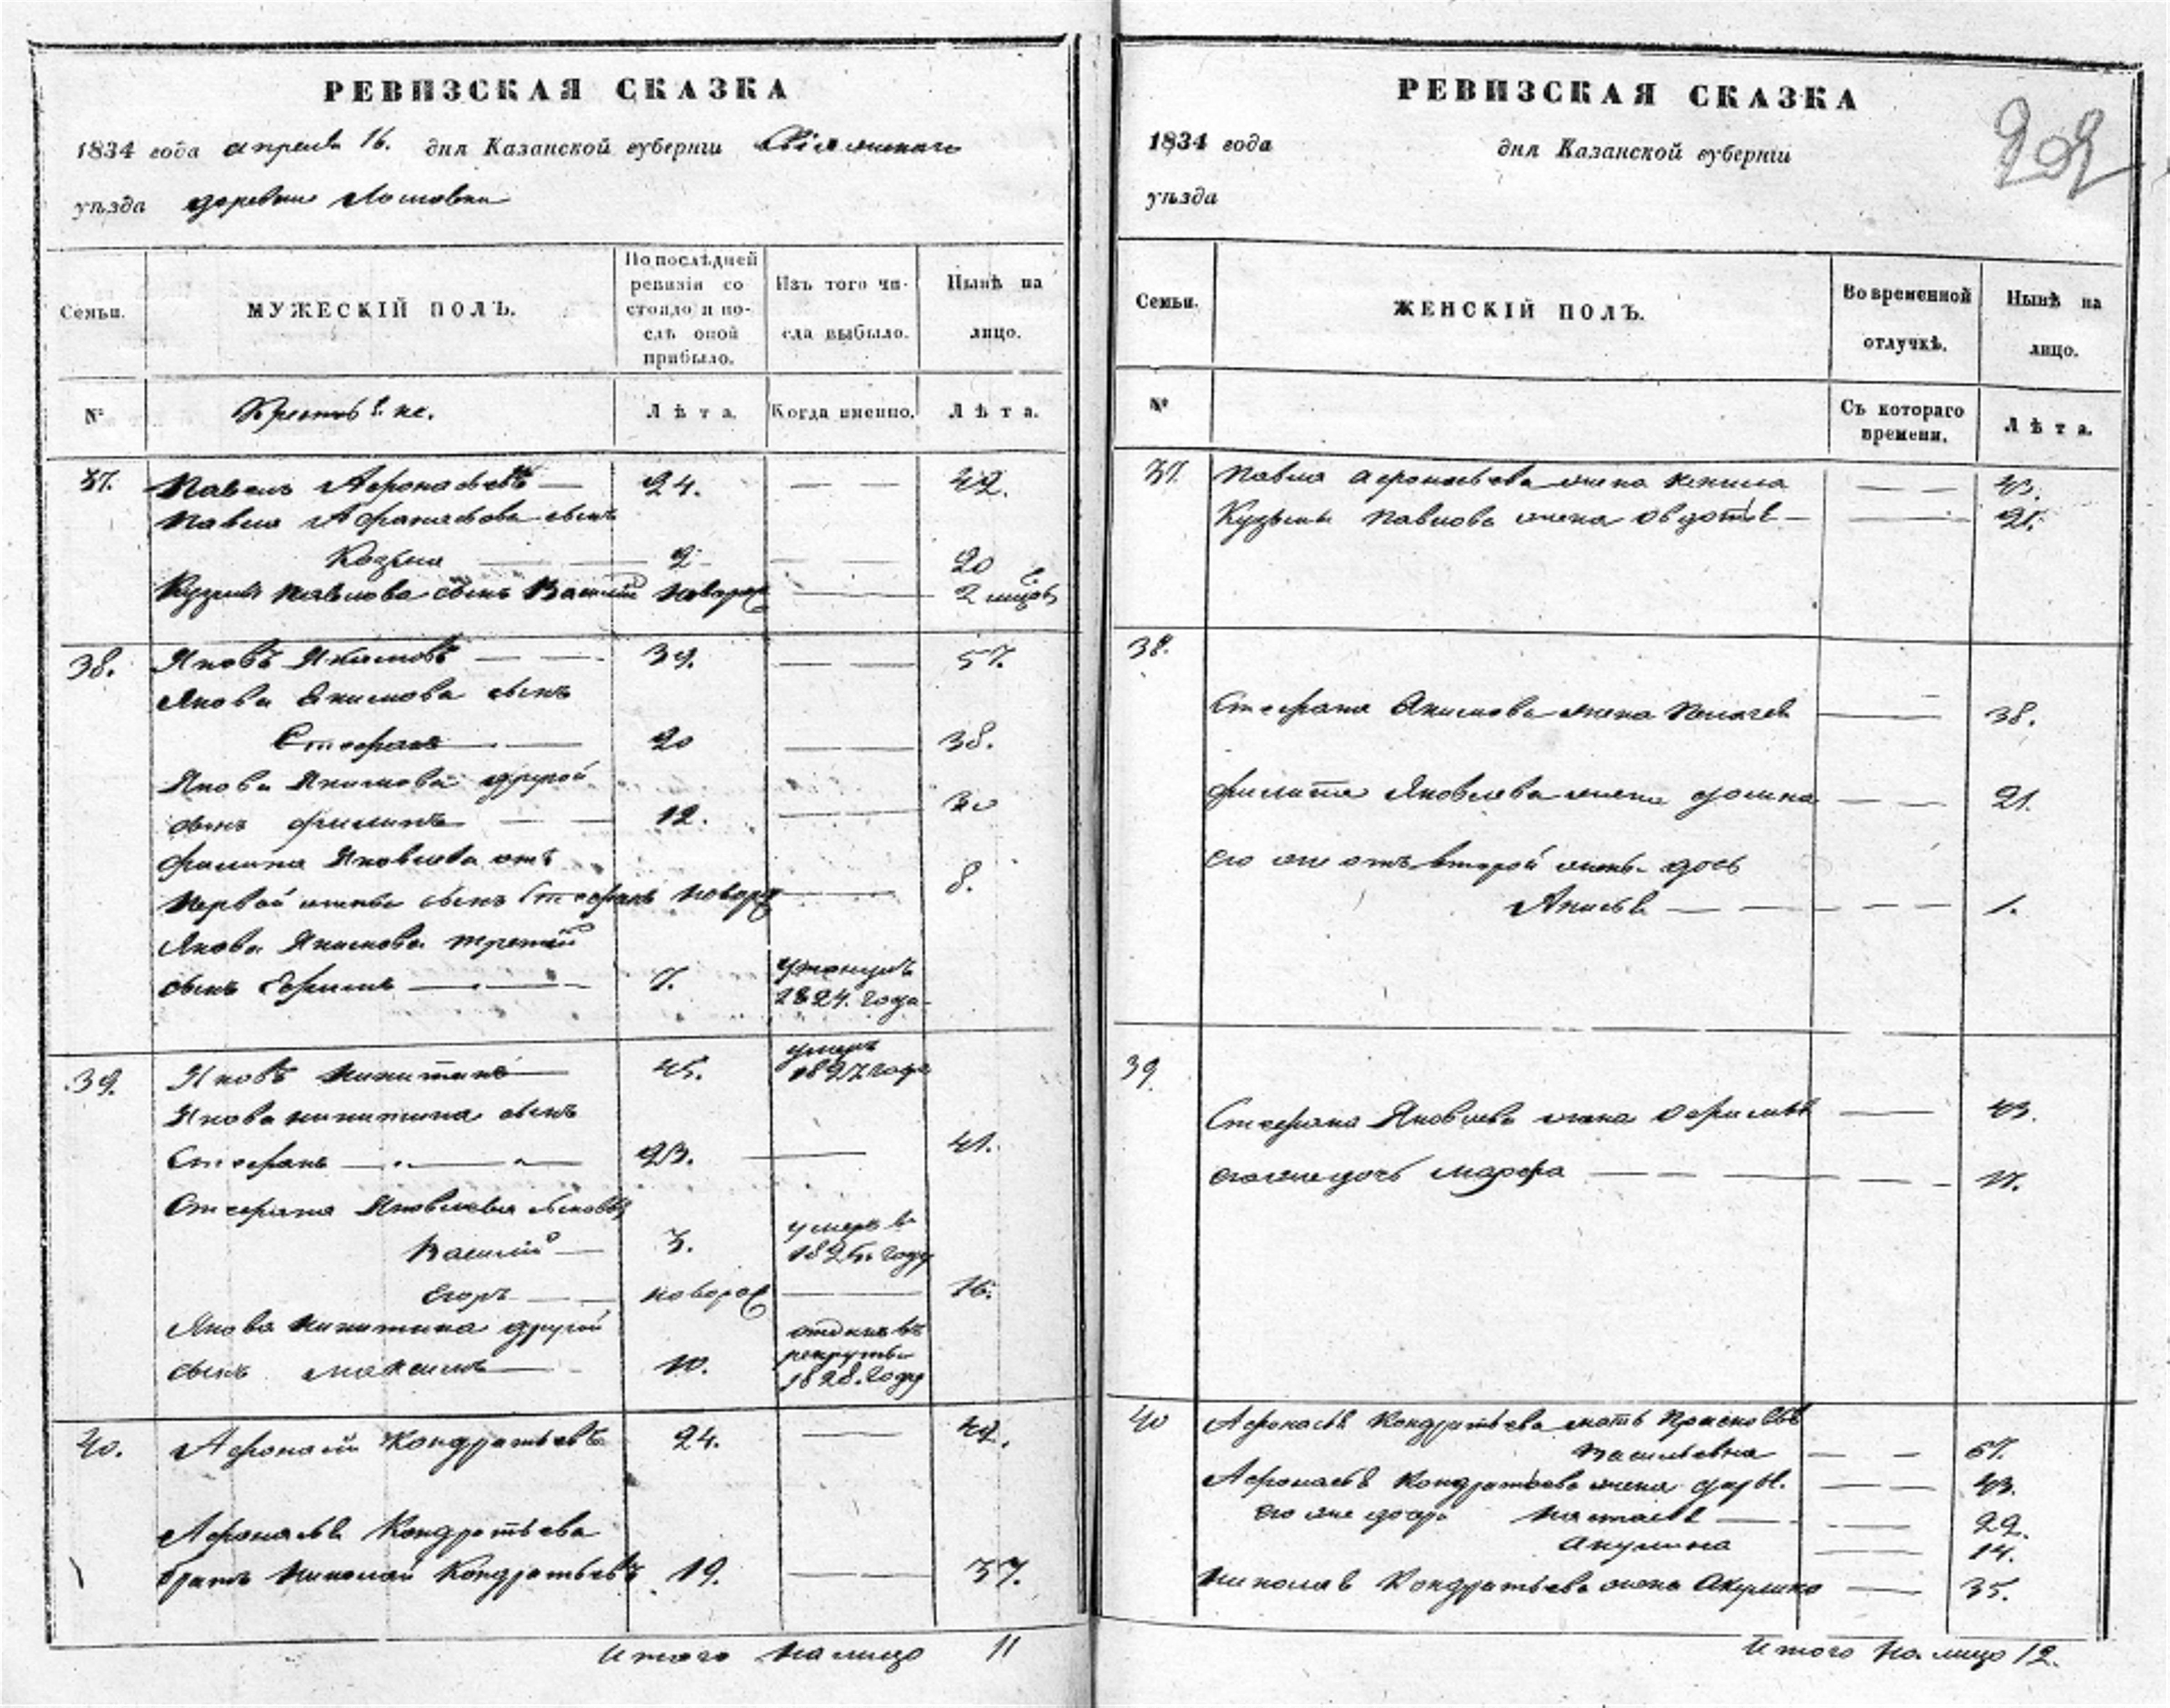 РЕВИЗСКАЯ СКАЗКА
1834 года апреля 16. дня Казанской губернiи
уѣзда деревни
Семьи.
МУЖЕСКIЙ ПОЛЪ.
По послѣдней ревизiи со стояло и по- слѣ оной прибыло.
Изъ того чи- сла выбыло.
Нынѣ на лицо.
№
Лѣта.
Когда именно.
Лѣта.
37. Павелъ Афонасьевъ — 24. — — 42.
Павла Афанасьева сынъ
Козма — 2 — — 20
Кузмы Павлова сынъ Василiй новорож — 2
38. Яковъ Якимовъ — — 39. — — 57.
Якова Якимова сынъ
Стефанъ — 20 — 38.
Якова Якимова другой
сынъ Филипъ — — 12. — 30
Филипа Яковлева отъ
первой жены сынъ Стефанъ новорож — 8.
Якова Якимова третiй
сынъ Ефимъ — 7. 1824. года
39. Яковъ Никитинъ — 45. умеръ 1827 года
Якова Никитина сынъ
Стефанъ — 23. — 41.
Стефана Яковлева сыновья
Василiй — 3. умеръ в 1825. году
Егоръ — новорож — 16.
Якова Никитина другой
сынъ Максимъ — 10. отданъ въ рекруты 1828. году
40. Афонасiй Кондратьевъ 24. — 42.
Афонасья Кондратьева
братъ Николай Кондратьевъ 19. — 37.
Итого на лицо 11
РЕВИЗСКАЯ СКАЗКА
202
1834 года дня Казанской губернiи
уѣзда
Семьи.
ЖЕНСКIЙ ПОЛЪ.
Во временной отлучкѣ.
Нынѣ на лицо.
№
Съ котораго времени.
Лѣта.
37. Павла Афонасьева жена — — 43.
Кузьмы Павлова жена Овдотья — — 21.
38.
Стефана Якимова жена Пелагея — 38.
Филипа Яковлева жена — — 21.
его же отъ второй жены дочь
Анисья — — — — 1.
39
Стефана Яковлева жена — 43.
его же дочь Марфа — — — — 17.
40 Афонасья Кондратьева мать Прасковья
Васильевна — — 67.
Афонасья Кондратьева жена Дарья. — — 43.
его же дочери Настасья — — 22.
Акулина — 14.
Николая Кондратьева жена Акулина — 35.
Итого на лицо 12.